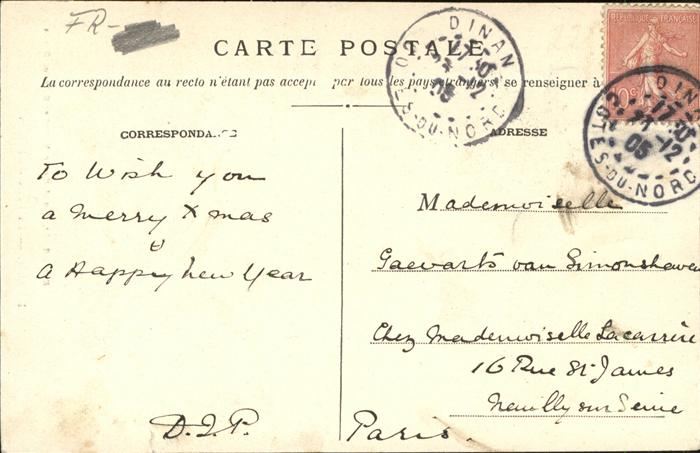 FR-
CARTE POSTALE
La correspondance au recto n'étant pas accep par tous les pays étrangers, se renseigner à
CORRESPONDA
To Wish you
a Merry Xmas
&
a Happy New Year
D.I.P.
ADRESSE
Mademoiselle
Gaevarts van Simonshaven
Chez Mademoiselle Lacarrère
16 Rue St James
Neuilly sur Seine
Paris.
REPUBLIQUE FRANÇAISE
10c
DINAN
COTES-DU-NORD
DINAN
17
12
05
COTES-DU-NORD